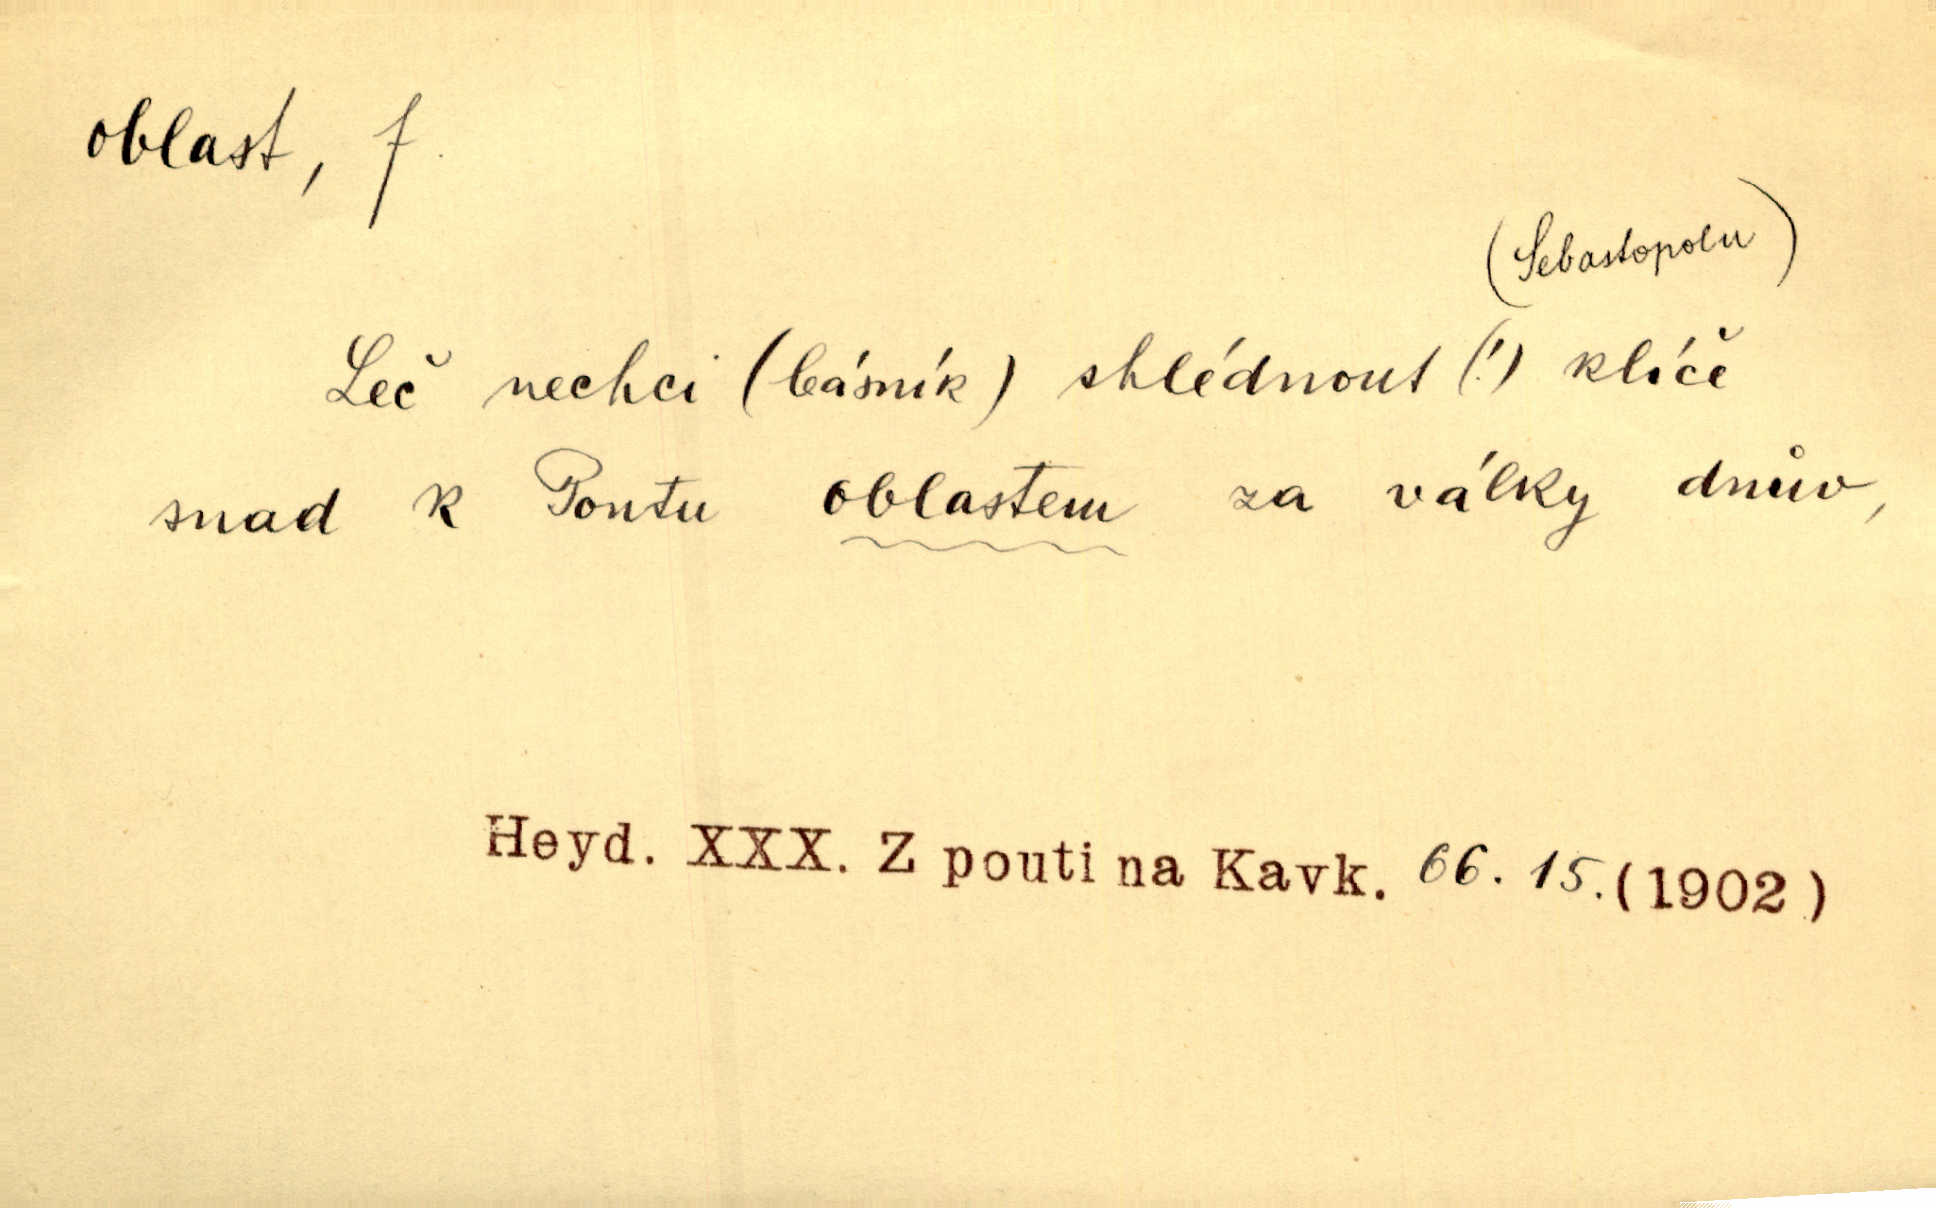 oblast, f.
(Sebastopolu)
Leč nechci (básník) shlédnout (!) klíče
snad k Pontu oblastem za války dnův,
Heyd. XXX. Z pouti na Kavk. 66. 15. (1902)